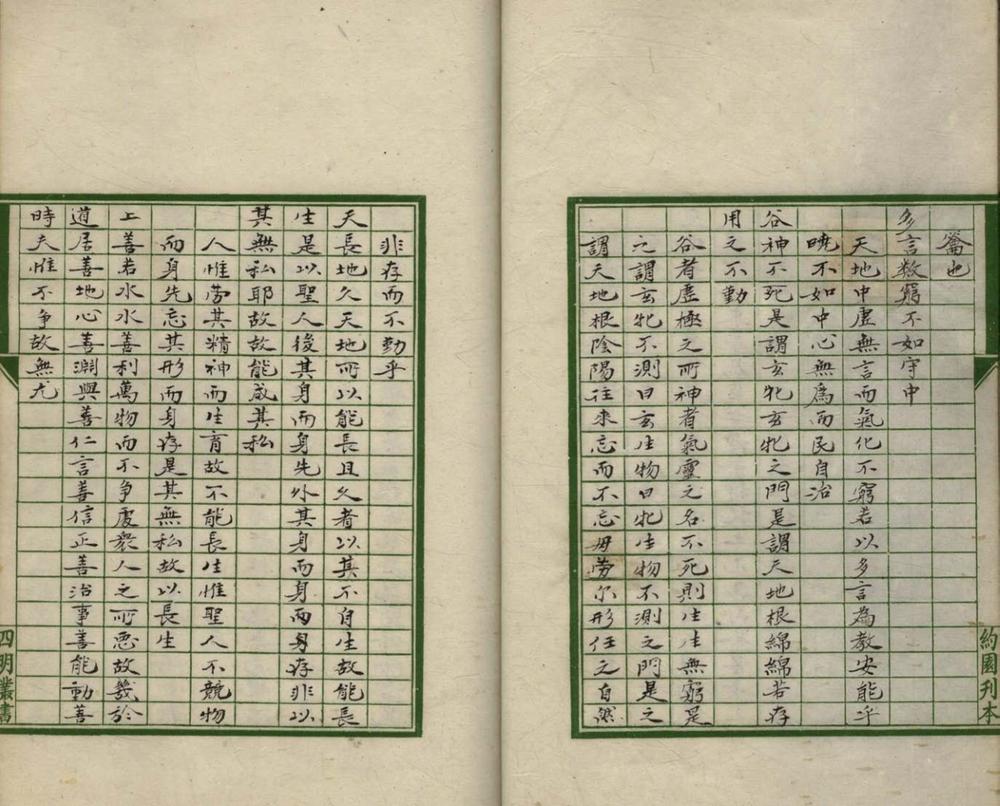 籥也
多言数窮不如守中
天地中虛無言而氣化不窮若以多言為教安能乎
曉不如中心無為而民自治
谷神不死是謂玄牝玄牝之門是謂天地根綿綿若存
用之不勤
谷者虛極之所神者氣靈之名不死則生生無窮是
之謂玄牝不測曰玄生物曰牝生物不測之門是之
謂天地根陰陽往來忘而不忘毋勞尔形任之自然
約園刊本
非存而不勤乎
天長地久天地所以能長且久者以其不自生故能長
生是以聖人後其身而身先外其身而身而身存非以
其無私耶故故能成其私
人惟勞其精神而生育故不能長生惟聖人不競物
而身先忘其形而身存是其無私故以長生
上善若水水善利萬物而不争處衆人之所惡故幾於
道居善地心善淵與善仁言善信正善治事善能動善
時夫惟不争故無尤
四明叢書